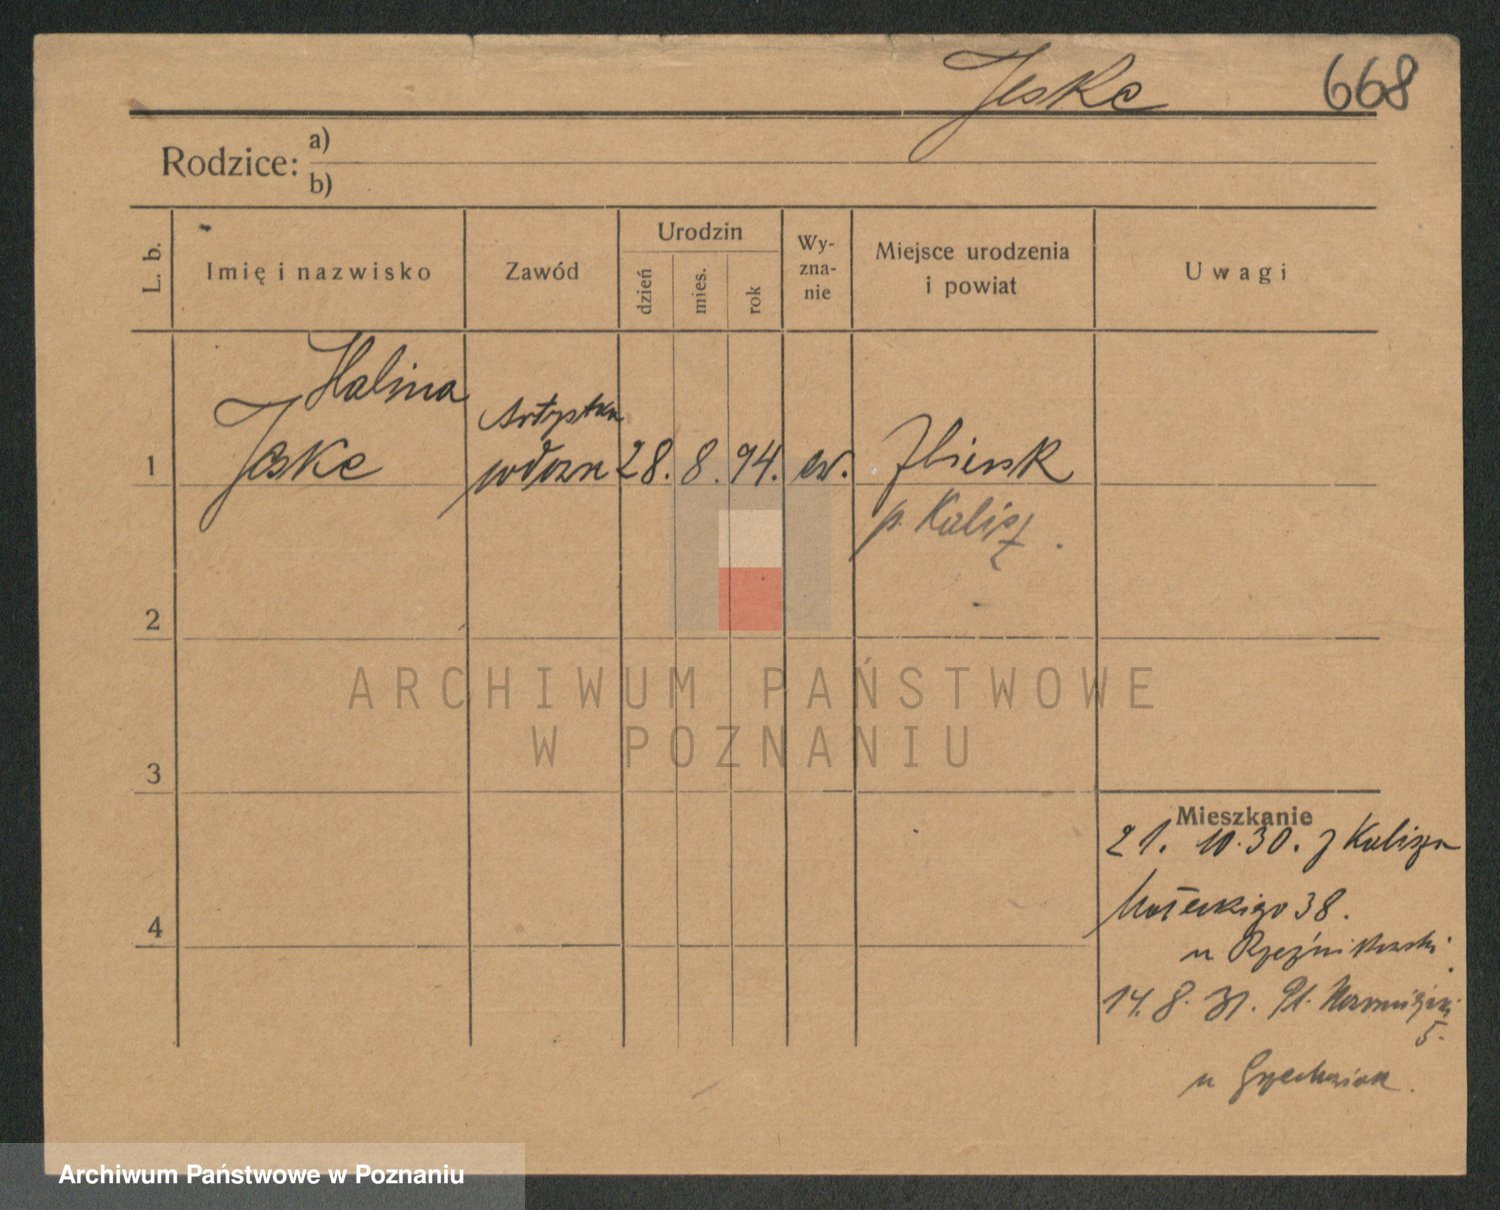 Jeske 668
Rodzice: a)
b)
L. b. Imię i nazwisko Zawód Urodzin dzień mies. rok Wy-zna-nie Miejsce urodzenia i powiat Uwagi
Halina
1 Jeske Artystka 28. 8. 94. ew. Zbiersk
p. Kalisz.
2
ARCHIWUM PAŃSTWOWE
W POZNANIU
3
Mieszkanie
21. 10. 30. z Kalisza
Małeckiego 38.
4
14. 8. 31. Pl.
5.
u
Archiwum Państwowe w Poznaniu